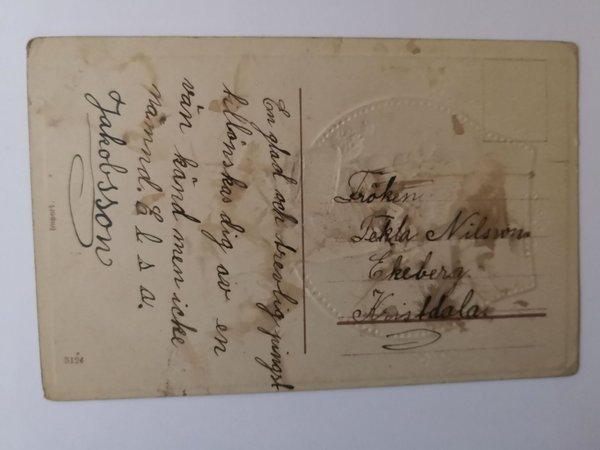 En glad och trevlig pingst
tillönskas dig av en
vän känd men icke
nämnd. Elsa.
Jakobsson
Fröken
Tekla Nilsson
Ekeberg
Kristdala
5124